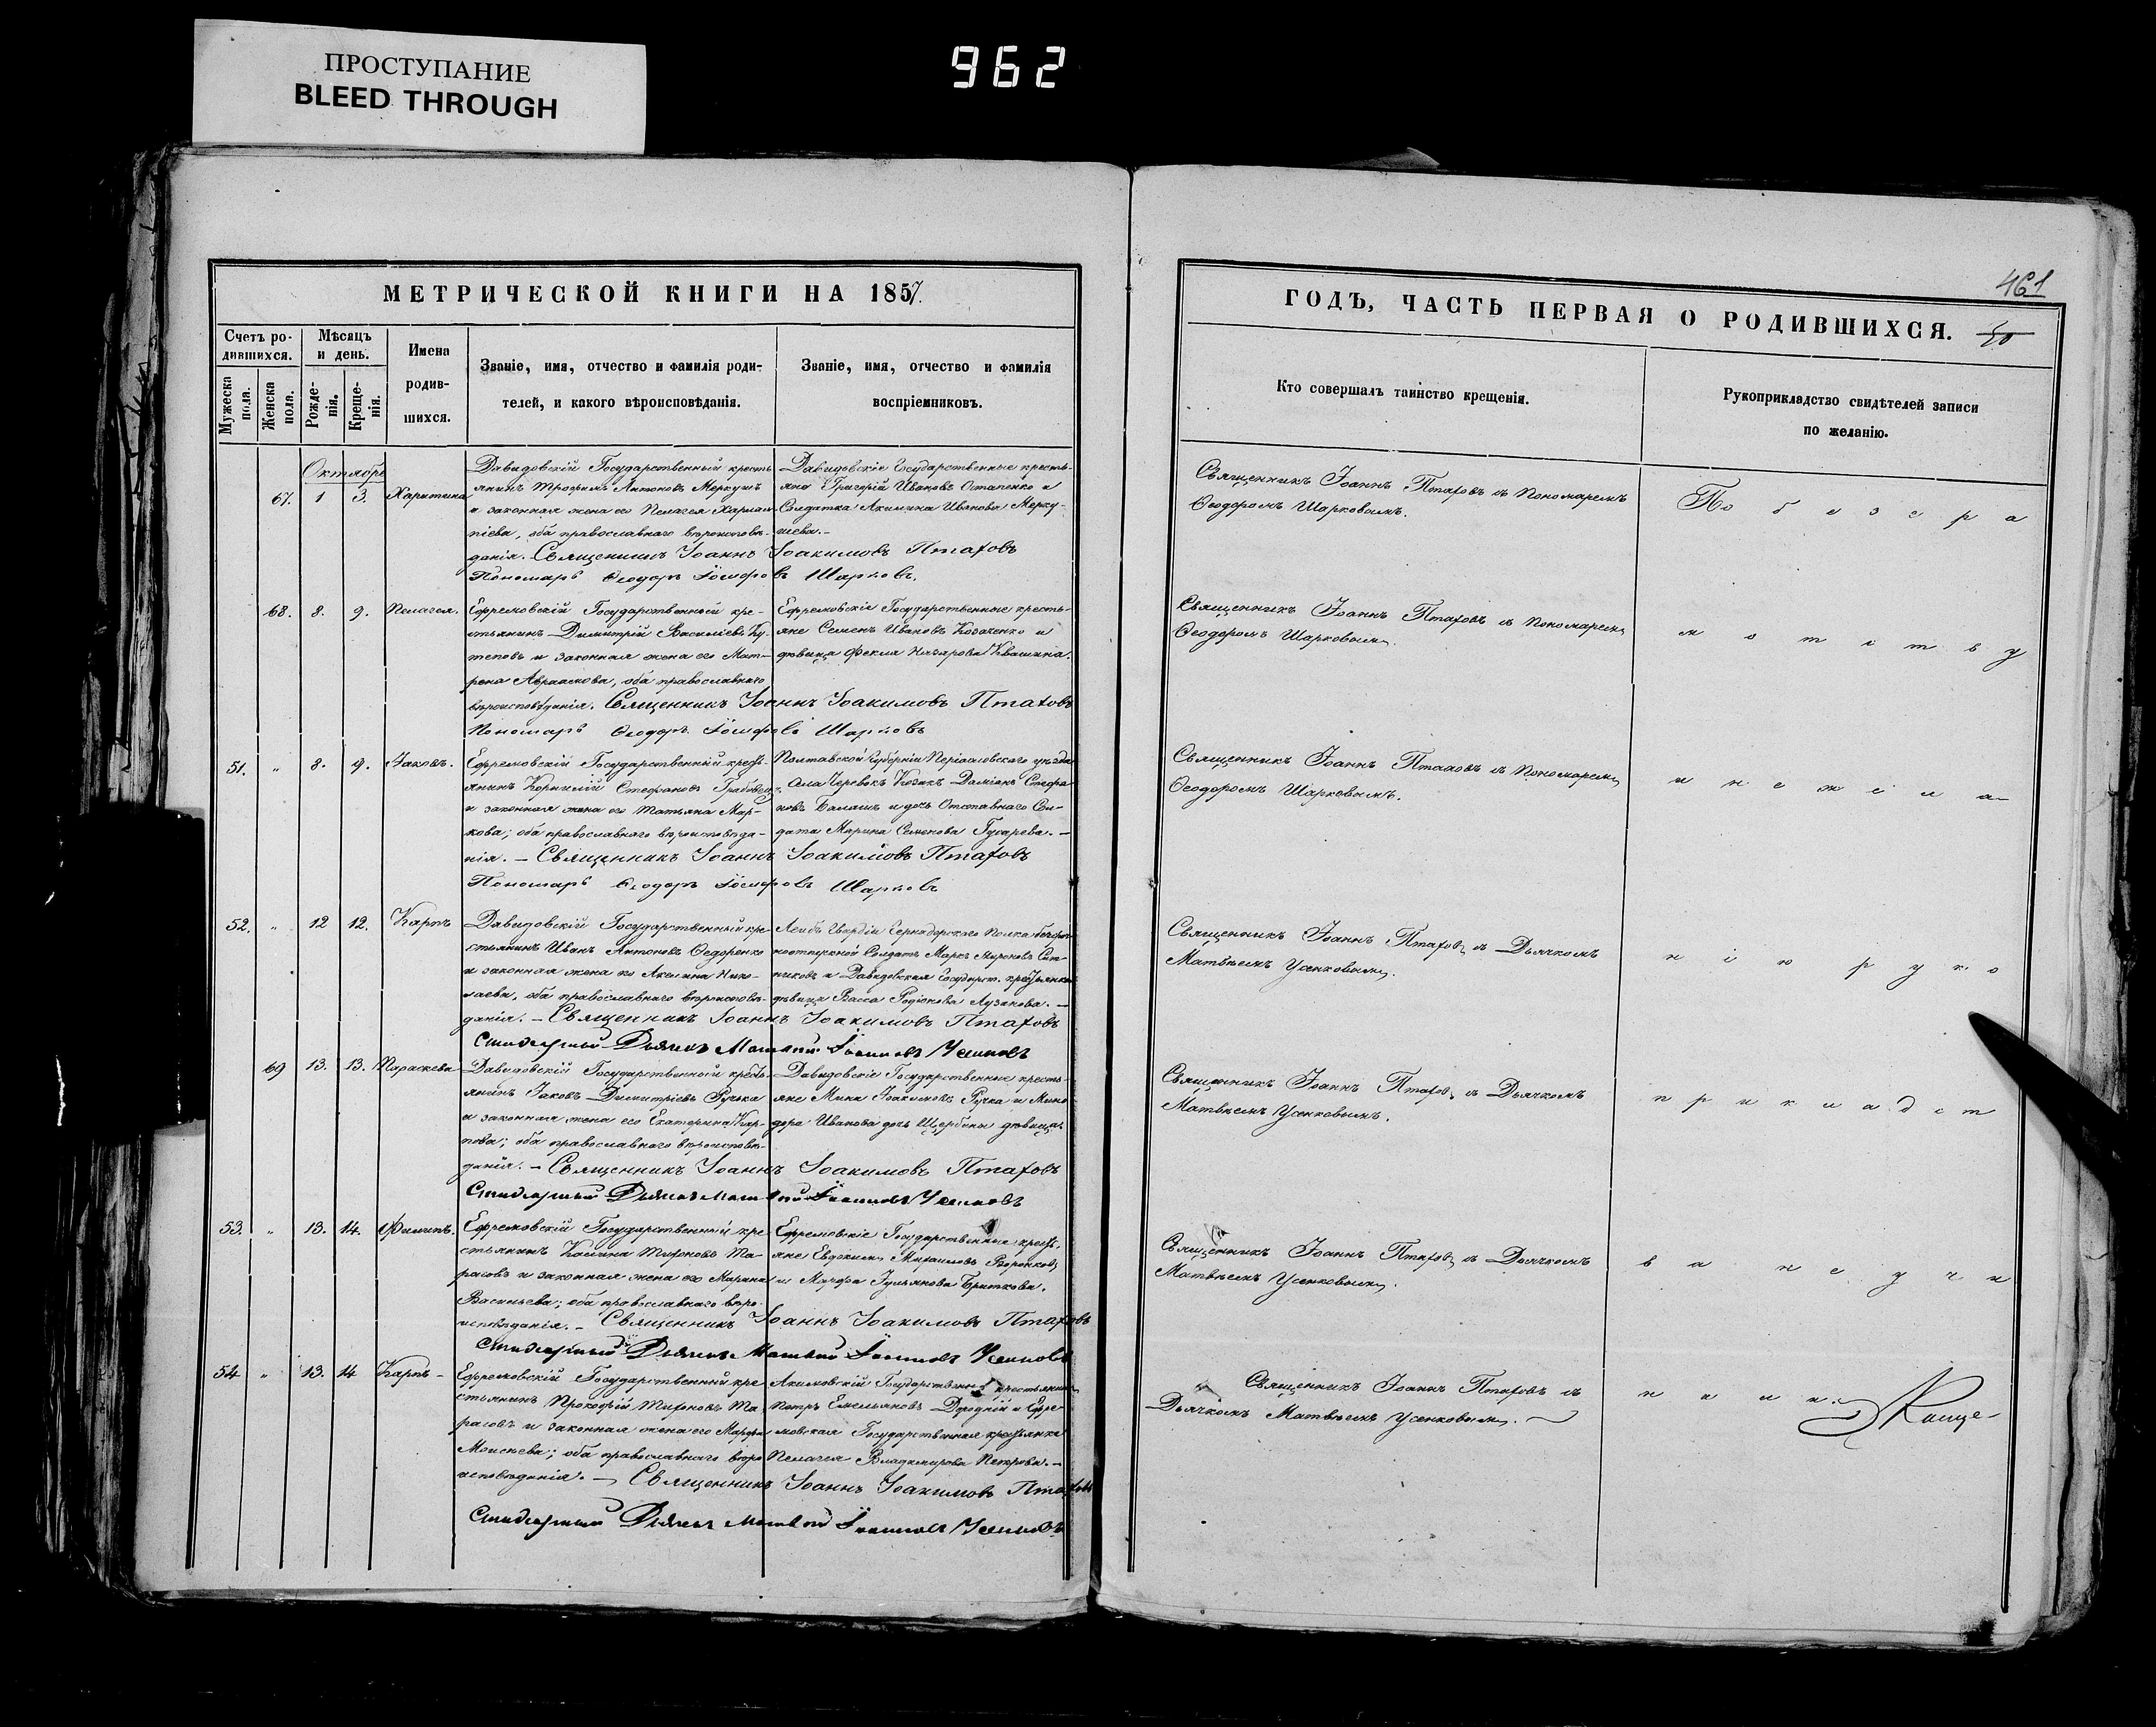 ПРОСТУПАНИЕ
BLEED THROUGH
962
461
МЕТРИЧЕСКОЙ КНИГИ НА 1857.
ГОДЪ, ЧАСТЬ ПЕРВАЯ О РОДИВШИХСЯ.
50
Счетъ ро-
дившихся.
Мужеска
пола.
Женска
пола.
Мѣсяцъ
и день.
Рожде-
нія.
Креще-
нія.
Имена
родив-
шихся.
Званіе, имя, отчество и фамилія роди-
телей, и какого вѣроисповѣданія.
Званіе, имя, отчество и фамилія
воспріемниковъ.
Кто совершалъ таинство крещенія.
Рукоприкладство свидѣтелей записи
по желанію.
Октябрь
67. 1 3. Харитина
Давидовскій Государственный кресть
янинъ Трофимъ Антоновъ Меркушъ
и законная жена его Пелагея Харлам-
піева, оба православнаго вѣроисповѣ-
данія. Священникъ Іоаннъ Іоакимовъ Птаховъ
Пономарь Ѳеодоръ Іосифовъ Шарковъ.
Давидовскіе Государственные кресть-
яне Григорій Ивановъ Остапенко и
Солдатка Акилина Иванова Мерку-
шева.-
Священникъ Іоаннъ Птаховъ съ Пономаремъ
Ѳеодоромъ Шарковымъ.
По безгра
68. 8. 9. Пелагея.
Ефремовскій Государственный кре-
стьянинъ Димитрій Василіевъ Ку-
теповъ и законная жена его Мат-
рена Авраамова, оба православнаго
вѣроисповѣданія. Священникъ Іоаннъ Іоакимовъ Птаховъ
Пономарь Ѳеодоръ Іосифовъ Шарковъ
Ефремовскіе Государственные кресть-
яне Семенъ Ивановъ Козаченко и
дѣвица Фекла Назарова Квашина.
Священникъ Іоаннъ Птаховъ съ Пономаремъ
Ѳеодоромъ Шарковымъ.
мотству
51. " 8. 9. Іаковъ.
Ефремовскій Государственный кресть-
янинъ Корнилій Стефановъ
и законная жена его Татьяна Мар-
кова; оба православнаго вѣроисповѣда-
нія. - Священникъ Іоаннъ Іоакимовъ Птаховъ
Пономарь Ѳеодоръ Іосифовъ Шарковъ
Полтавской Губерніи уѣзда
села Козакъ Даміанъ Стефа
новъ Балашъ и дочь Отставнаго Сол-
дата Марина Семенова Гусарева. -
Священникъ Іоаннъ Птаховъ съ Пономаремъ
Ѳеодоромъ Шарковымъ.
и нежела-
52. " 12 12. Карпъ
Давидовскій Государственный кре-
стьянинъ Иванъ Антоновъ Федоренко
и законная жена его Акилина Нико-
лаева, оба православнаго вѣроисповѣ-
данія. - Священникъ Іоаннъ Іоакимовъ Птаховъ
Стихарный Дьячекъ Матвей Іоанновъ Усенковъ
Лейбъ Гвардіи Полка безсроч-
ноотпускной Солдатъ Маркъ Мироновъ Сит-
никовъ и Давидовская Государст. крестьянка
дѣвица Васса Родіонова Лузанова. -
Священникъ Іоаннъ Птаховъ съ Дьячкомъ
Матвѣемъ Усенковымъ.
нію руко
69 13. 13. Параскева
Давидовскій Государственный кресть-
янинъ Іаковъ Димитріевъ Ручка
и законная жена его Екатерина Кар-
пова; оба православнаго вѣроисповѣ-
данія. - Священникъ Іоаннъ Іоакимовъ Птаховъ
Стихарный Дьячекъ Матвей Іоанновъ Усенковъ
Давидовскіе Государственные кресть-
яне Мина Іоакимовъ Ручка и Мино
дора Иванова дочь Щербины дѣвица.
Священникъ Іоаннъ Птаховъ съ Дьячкомъ
Матвѣемъ Усенковымъ.
прикладст
53. " 13. 14. Филипъ.
Ефремовскій Государственный кре
стьянинъ Калина Тихоновъ Та-
расовъ и законная жена его Марина
Васильева; оба православнаго вѣро-
исповѣданія. - Священникъ Іоаннъ Іоакимовъ Птаховъ
Стихарный Дьячекъ Матвей Іоанновъ Усенковъ
Ефремовскіе Государственные кресть-
яне Евдокимъ Михаиловъ Воронковъ
и Марфа Іулианова Бриткова.
Священникъ Іоаннъ Птаховъ съ Дьячкомъ
Матвѣемъ Усенковымъ.
ва не учи
54 " 13. 14 Карпъ -
Ефремовскій Государственный кре
стьянинъ Прокофій Тихоновъ Та-
расовъ и законная жена его Марфа
Моисеева; оба православнаго вѣро
исповѣданія. - Священникъ Іоаннъ Іоакимовъ Птаховъ
Стихарный Дьячекъ Матвей Іоанновъ Усенковъ
Акимовскій Государственный крестьянинъ
Петръ Емельяновъ и Ефре
мовская Государственная крестьянка
Пелагея Владимирова Петрова. -
Священникъ Іоаннъ Птаховъ съ
Дьячкомъ Матвѣемъ Усенковымъ.
нили.